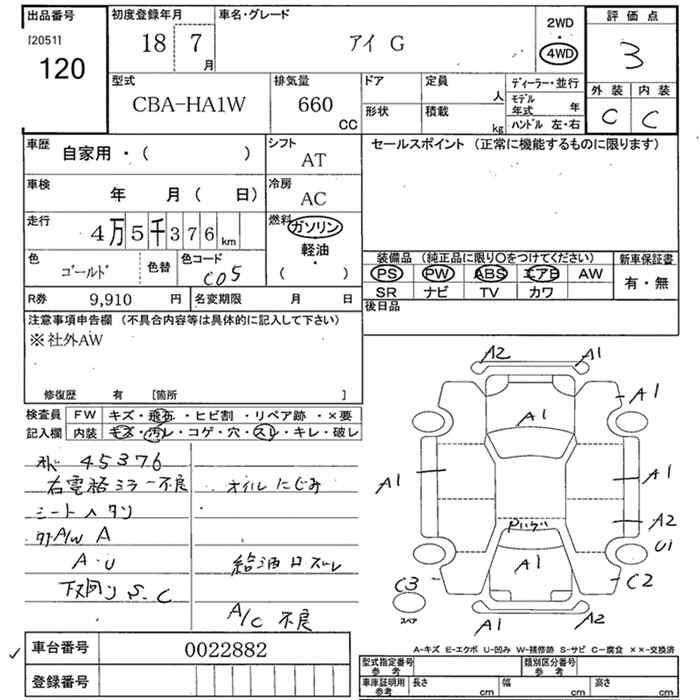 出品番号
[2051]
120
初度登録年月
18 7
月
車名・グレード
アイ G
2WD
・
4WD
評価点
3
外装 内装
C C
型式
CBA-HA1W
排気量
660
CC
ドア
形状
定員
人
積載
kg
ディーラー・並行
モデル
年式 年
ハンドル 左・右
車歴
自家用・( )
シフト
AT
セールスポイント (正常に機能するものに限ります)
車検
年 月 ( 日)
冷房
AC
走行
4万5千376km
燃料
ガソリン
軽油
( )
色
ゴールド
色替
色コード
C05
装備品 (純正品に限り〇をつけてください)
PS PW ABS エアB AW
SR ナビ TV カワ
新車保証書
有・無
R券 9,910 円
名変期限 月 日
後日品
注意事項申告欄 (不具合内容等は具体的に記入して下さい)
※社外AW
修復歴 有 [箇所 ]
検査員
記入欄
FW キズ・飛石・ヒビ割・リペア跡・×要
内装 キズ・汚レ・コゲ・穴・スレ・キレ・破レ
45376
右電格ミラー不良 オイルにじみ
シートヘタリ
A/W A
A・U 給油口ズレ
下回り S.C
A/C 不良
A2 A1
A1 A1
A1 A1
A2
A1 U1
C3 C2
スペア
A1 A2
A-キズ E-エクボ U-凹み W-補修跡 S-サビ C-腐食 ××-交換済
車台番号 0022882
登録番号
型式指定番号
参考
類別区分番号
参考
車庫証明用
参考
長さ cm 幅 cm 高さ cm